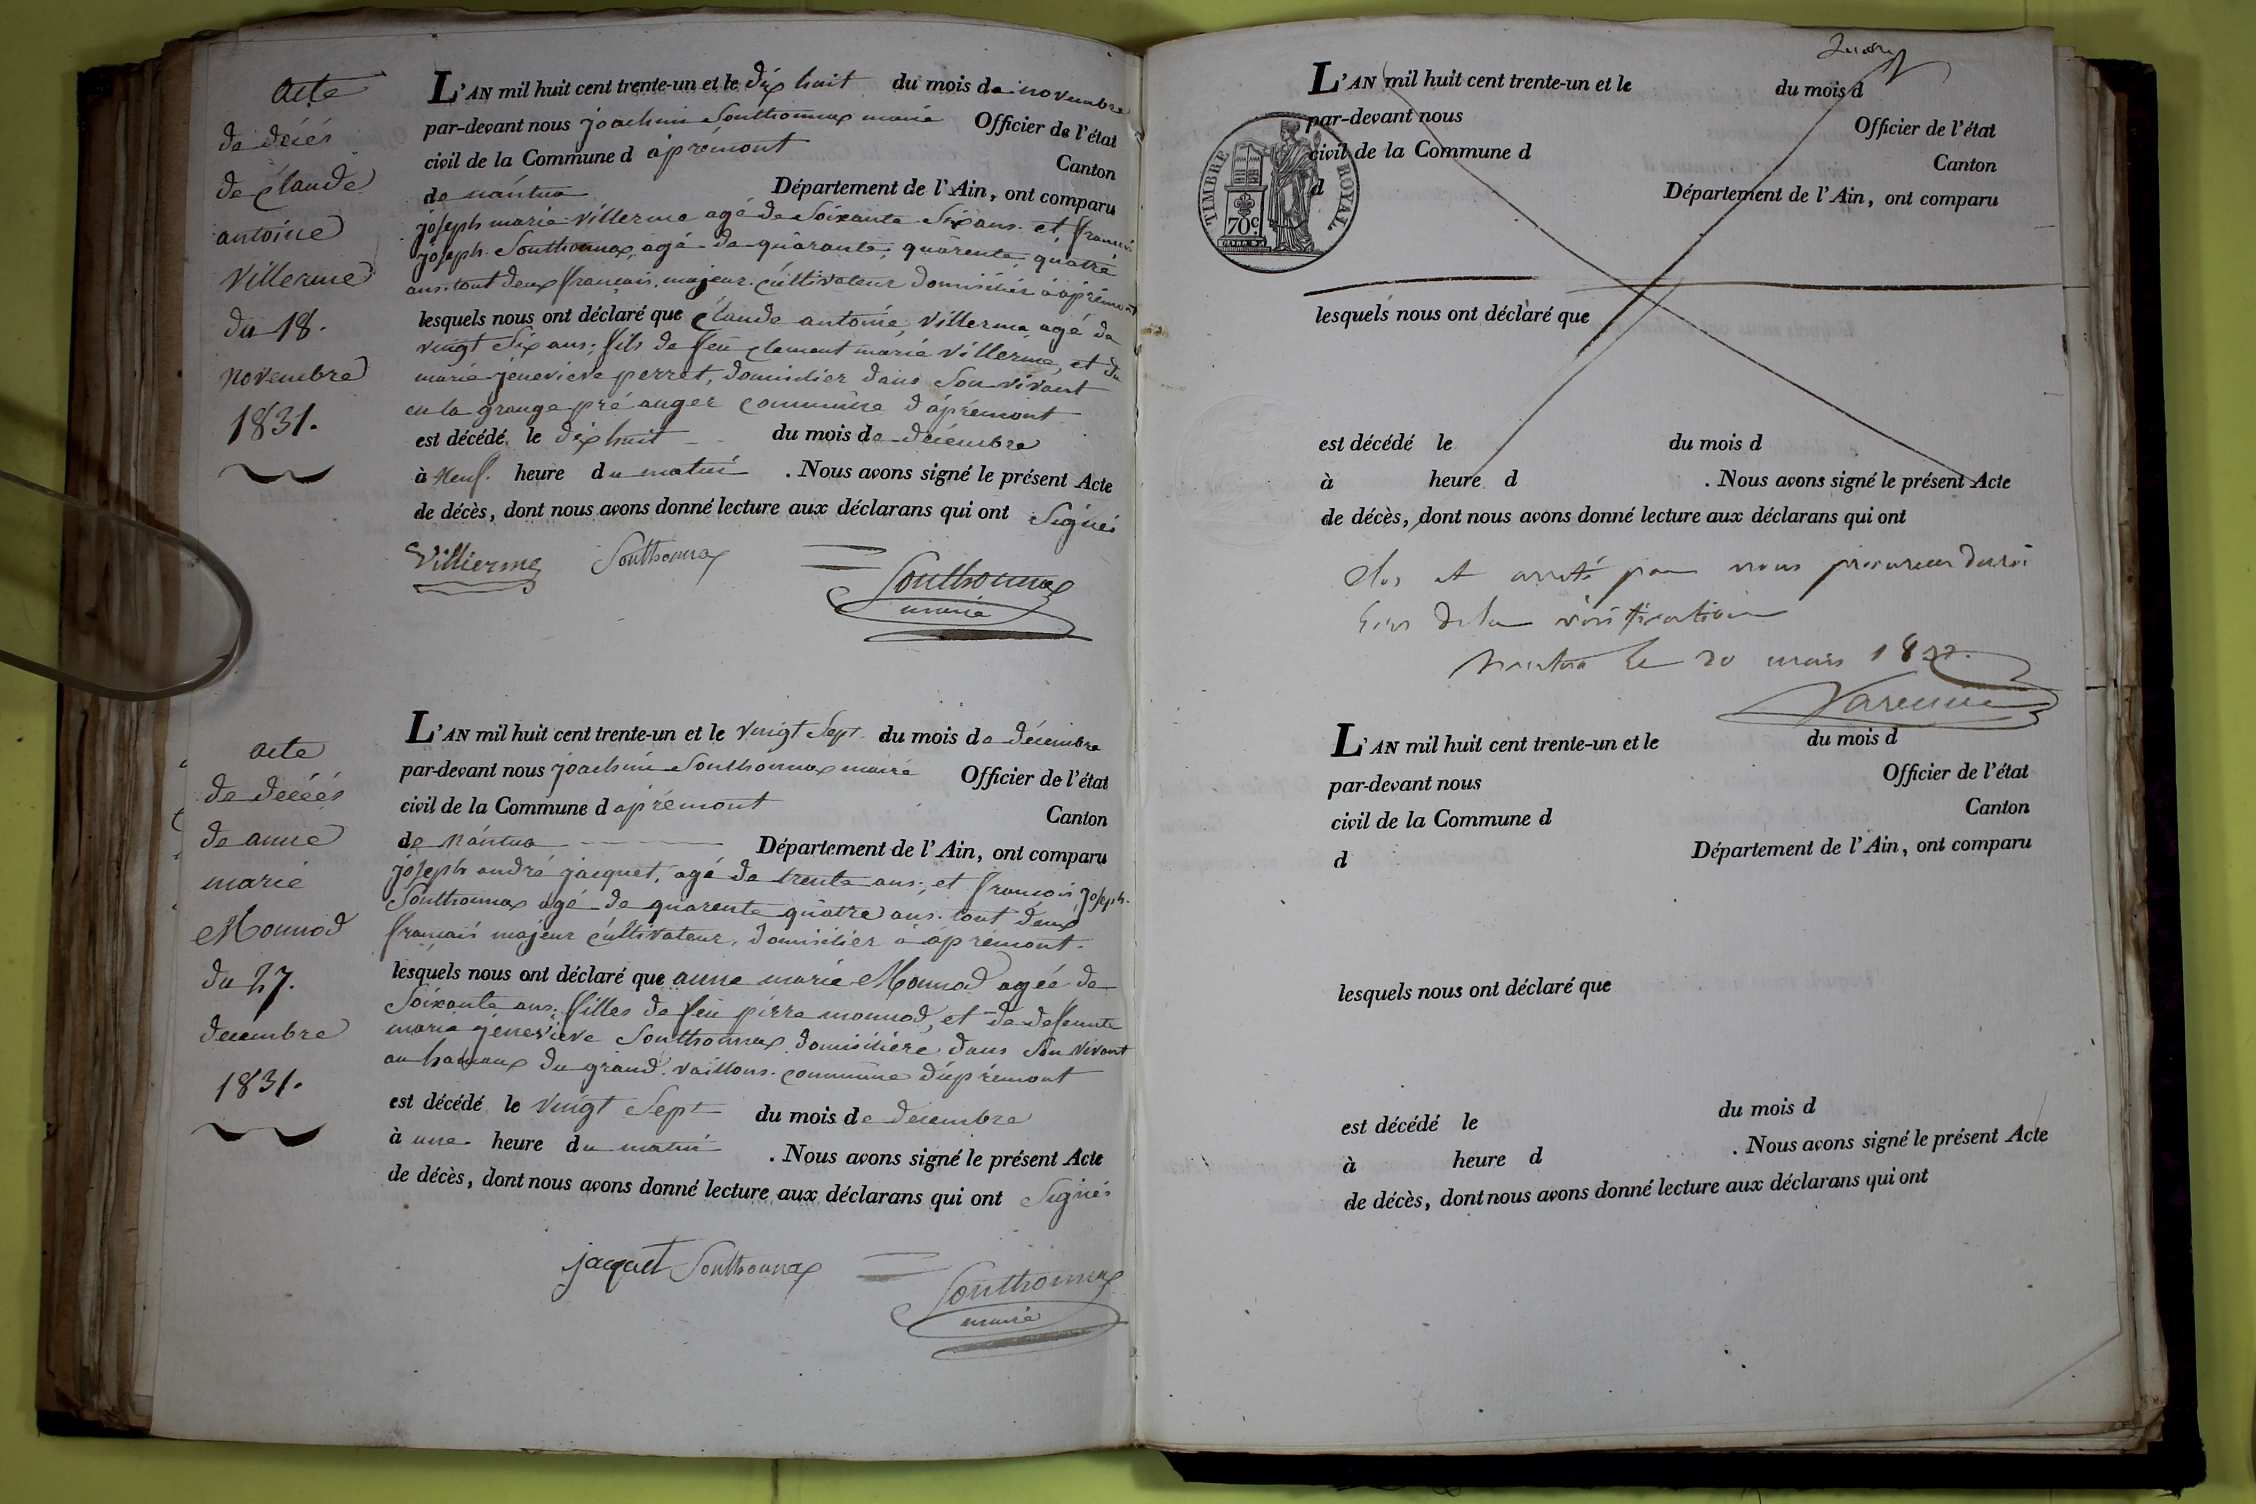 acte
de décés
de claude
antoine
villerme
du 18.
novembre
1831.
L'AN mil huit cent trente-un et le dix huit du mois de novembre
par-devant nous joachim Southonnax maire Officier de l'état
civil de la Commune d apremont Canton
de nantua Département de l'Ain, ont comparu
joseph marie villerme agé de Soixante Six ans. et francois
joseph Southonnax, agé de quarante, quarente quatre
ans. tout deux francais, majeur. cultivateur domicilier à apremont
lesquels nous ont déclaré que claude antoine villerme agé de
vingt Six ans; fils de feu clement marie villerme, et de
marie jenevieve perret, domicilier dans Son vivant
en la grange pré auger commune d'apremont
est décédé le dix huit du mois de décembre
à neuf. heure du matin . Nous avons signé le présent Acte
de décès, dont nous avons donné lecture aux déclarans qui ont Signés
Villierme Southonnax
Southonnax
maire
acte
de décés
de anne
marie
Monnod
du 27.
decembre
1831.
L'AN mil huit cent trente-un et le vingt Sept du mois de décembre
par-devant nous joachim Southonnax maire Officier de l'état
civil de la Commune d apremont Canton
de nantua Département de l'Ain, ont comparu
joseph andré jacquet, agé de trente ans; et francois, joseph
Southonnax agé de quarente quatre ans. tout deux
francais majeur cultivateur, domicilier à apremont.
lesquels nous ont déclaré que anne marie Monnod agée de
Soixante ans; filles de feu pierre monnod, et de defeunte
marie jenevieve Southonnax domicilière dans Son vivant
au hameaux du grand vaillons. commune d'apremont
est décédé le vingt Sept du mois de decembre
à une heure du matin . Nous avons signé le présent Acte
de décès, dont nous avons donné lecture aux déclarans qui ont Signés
jacquet Southonnax
Southonnax
maire
L'AN mil huit cent trente-un et le du mois d
par-devant nous Officier de l'état
civil de la Commune d Canton
d Département de l'Ain, ont comparu
TIMBRE ROYAL
70c
lesquels nous ont déclaré que
est décédé le du mois d
à heure d . Nous avons signé le présent Acte
de décès, dont nous avons donné lecture aux déclarans qui ont
Clos et arreté par nous procureur du roi
lors de la vérification
Nantua le 20 mars 1832.
L'AN mil huit cent trente-un et le du mois d
par-devant nous Officier de l'état
civil de la Commune d Canton
d Département de l'Ain, ont comparu
lesquels nous ont déclaré que
est décédé le du mois d
à heure d . Nous avons signé le présent Acte
de décès, dont nous avons donné lecture aux déclarans qui ont